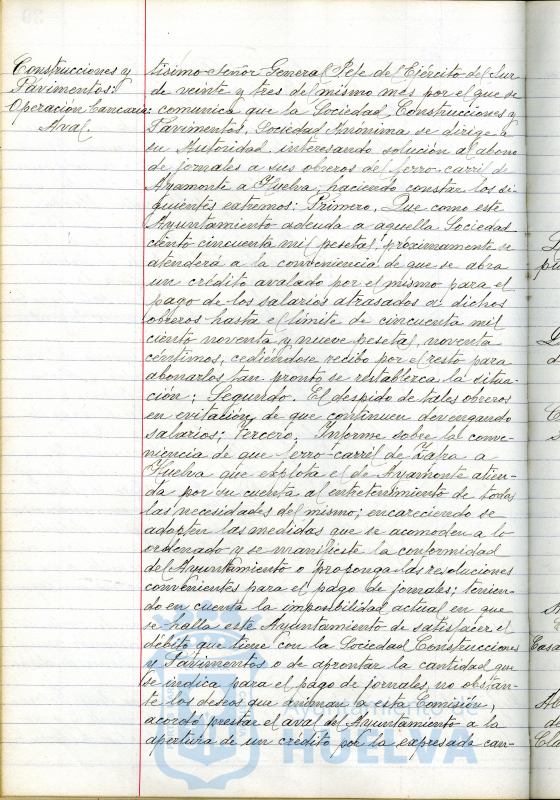 Construcciones y
Pavimentos:
Operación bancaria:
Aval.
tisimo Señor General Jefe del Ejército del Sur
de veinte y tres del mismo mes por el que se
comunica que la Sociedad, Construcciones y
Pavimentos, Sociedad Anónima se dirige a
su Autoridad interesando solución al abono
de jornales a sus obreros del ferro-carril de
Ayamonte a Huelva, haciendo constar los si-
guientes extremos: Primero, Que como este
Ayuntamiento adeuda a aquella Sociedad
ciento cincuenta mil pesetas, próximamente se
atenderá a la conveniencia de que se abra
un crédito avalado por el mismo para el
pago de los salarios atrasados a dichos
obreros hasta el límite de cincuenta mil
ciento noventa y nueve pesetas, noventa
céntimos, cediéndose recibo por el resto para
abonarlos tan pronto se restablezca la situa-
ción; Segundo. El despido de tales obreros
en evitación de que continuen devengando
salarios; Tercero, Informe sobre la conve-
niencia de que ferro-carril de Zafra a
Huelva que explota el de Ayamonte atien-
da por su cuenta al entretenimiento de todas
las necesidades del mismo; encareciendo se
adopten las medidas que se acomoden a lo
ordenado y se manifieste la conformidad
del Ayuntamiento o proponga las resoluciones
convenientes para el pago de jornales; tenien-
do en cuenta la imposibilidad actual en que
se halla este Ayuntamiento de satisfacer el
débito que tiene con la Sociedad Construcciones
y Pavimentos o de aprontar la cantidad que
se indica para el pago de jornales no obstan-
te los deseos que animan a esta Comisión,
acordó prestar el aval del Ayuntamiento a la
apertura de un crédito por la expresada can-
Ayuntamiento de
HUELVA